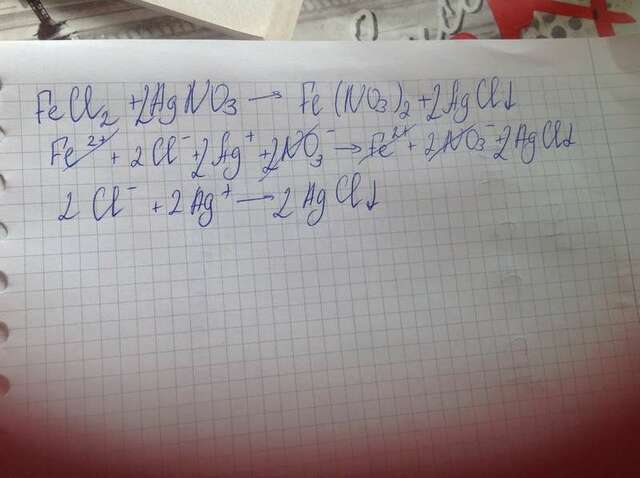 FeCl₂ + 2AgNO₃ → Fe(NO₃)₂ + 2AgCl↓
Fe²⁺ + 2Cl⁻ + 2Ag⁺ + 2NO₃⁻ → Fe²⁺ + 2NO₃⁻ + 2AgCl↓
2Cl⁻ + 2Ag⁺ → 2AgCl↓